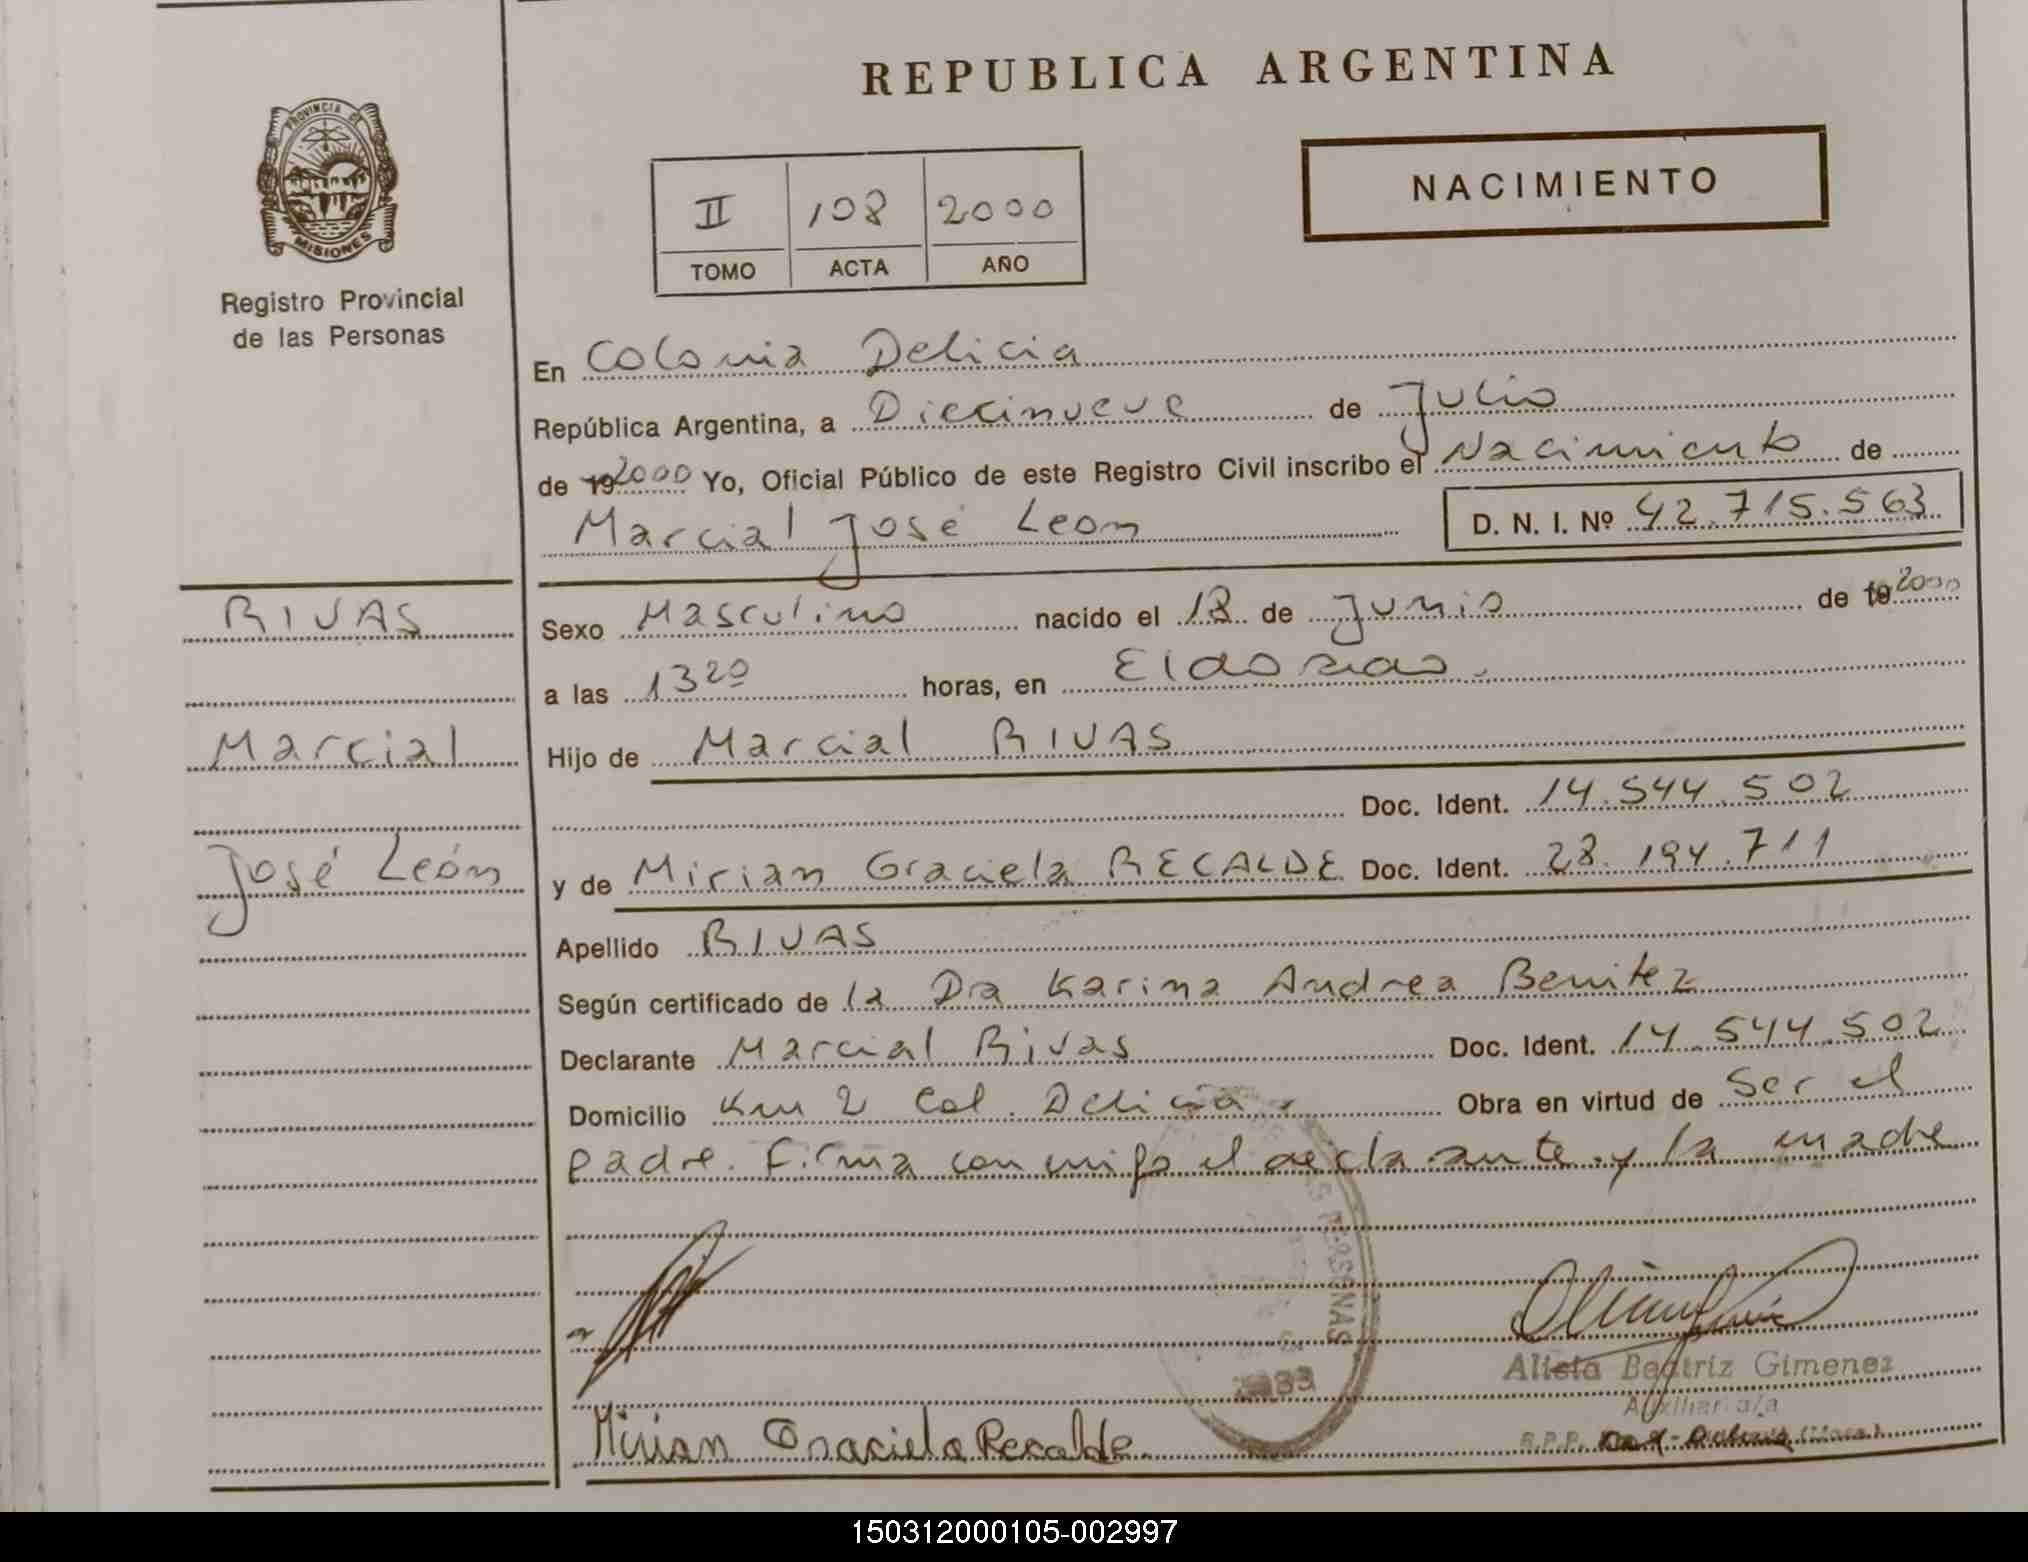 REPUBLICA ARGENTINA
PROVINCIA DE
MISIONES
Registro Provincial
de las Personas
II 108 2000
TOMO ACTA AÑO
NACIMIENTO
En Colonia Delicia
República Argentina, a Diecinueve de Julio
de 19 2000 Yo, Oficial Público de este Registro Civil inscribo el Nacimiento de
Marcial José Leon D. N. I. Nº 42.715.563
RIVAS
Marcial
José León
Sexo Masculino nacido el 18 de Junio de 19 2000
a las 13 20 horas, en Eldorado.
Hijo de Marcial RIVAS
Doc. Ident. 14.544.502
y de Mirian Graciela RECALDE Doc. Ident. 28.194.711
Apellido RIVAS
Según certificado de la Dra Karina Andrea Benitez
Declarante Marcial Rivas Doc. Ident. 14.544.502
Domicilio Km 2 Col. Delicia. Obra en virtud de Ser el
padre. Firma con migo el declarante y la madre
PERSONAS
Alicia Beatriz Gimenez
Auxiliar a/a
R.P.P.
Mirian Graciela Recalde.
150312000105-002997